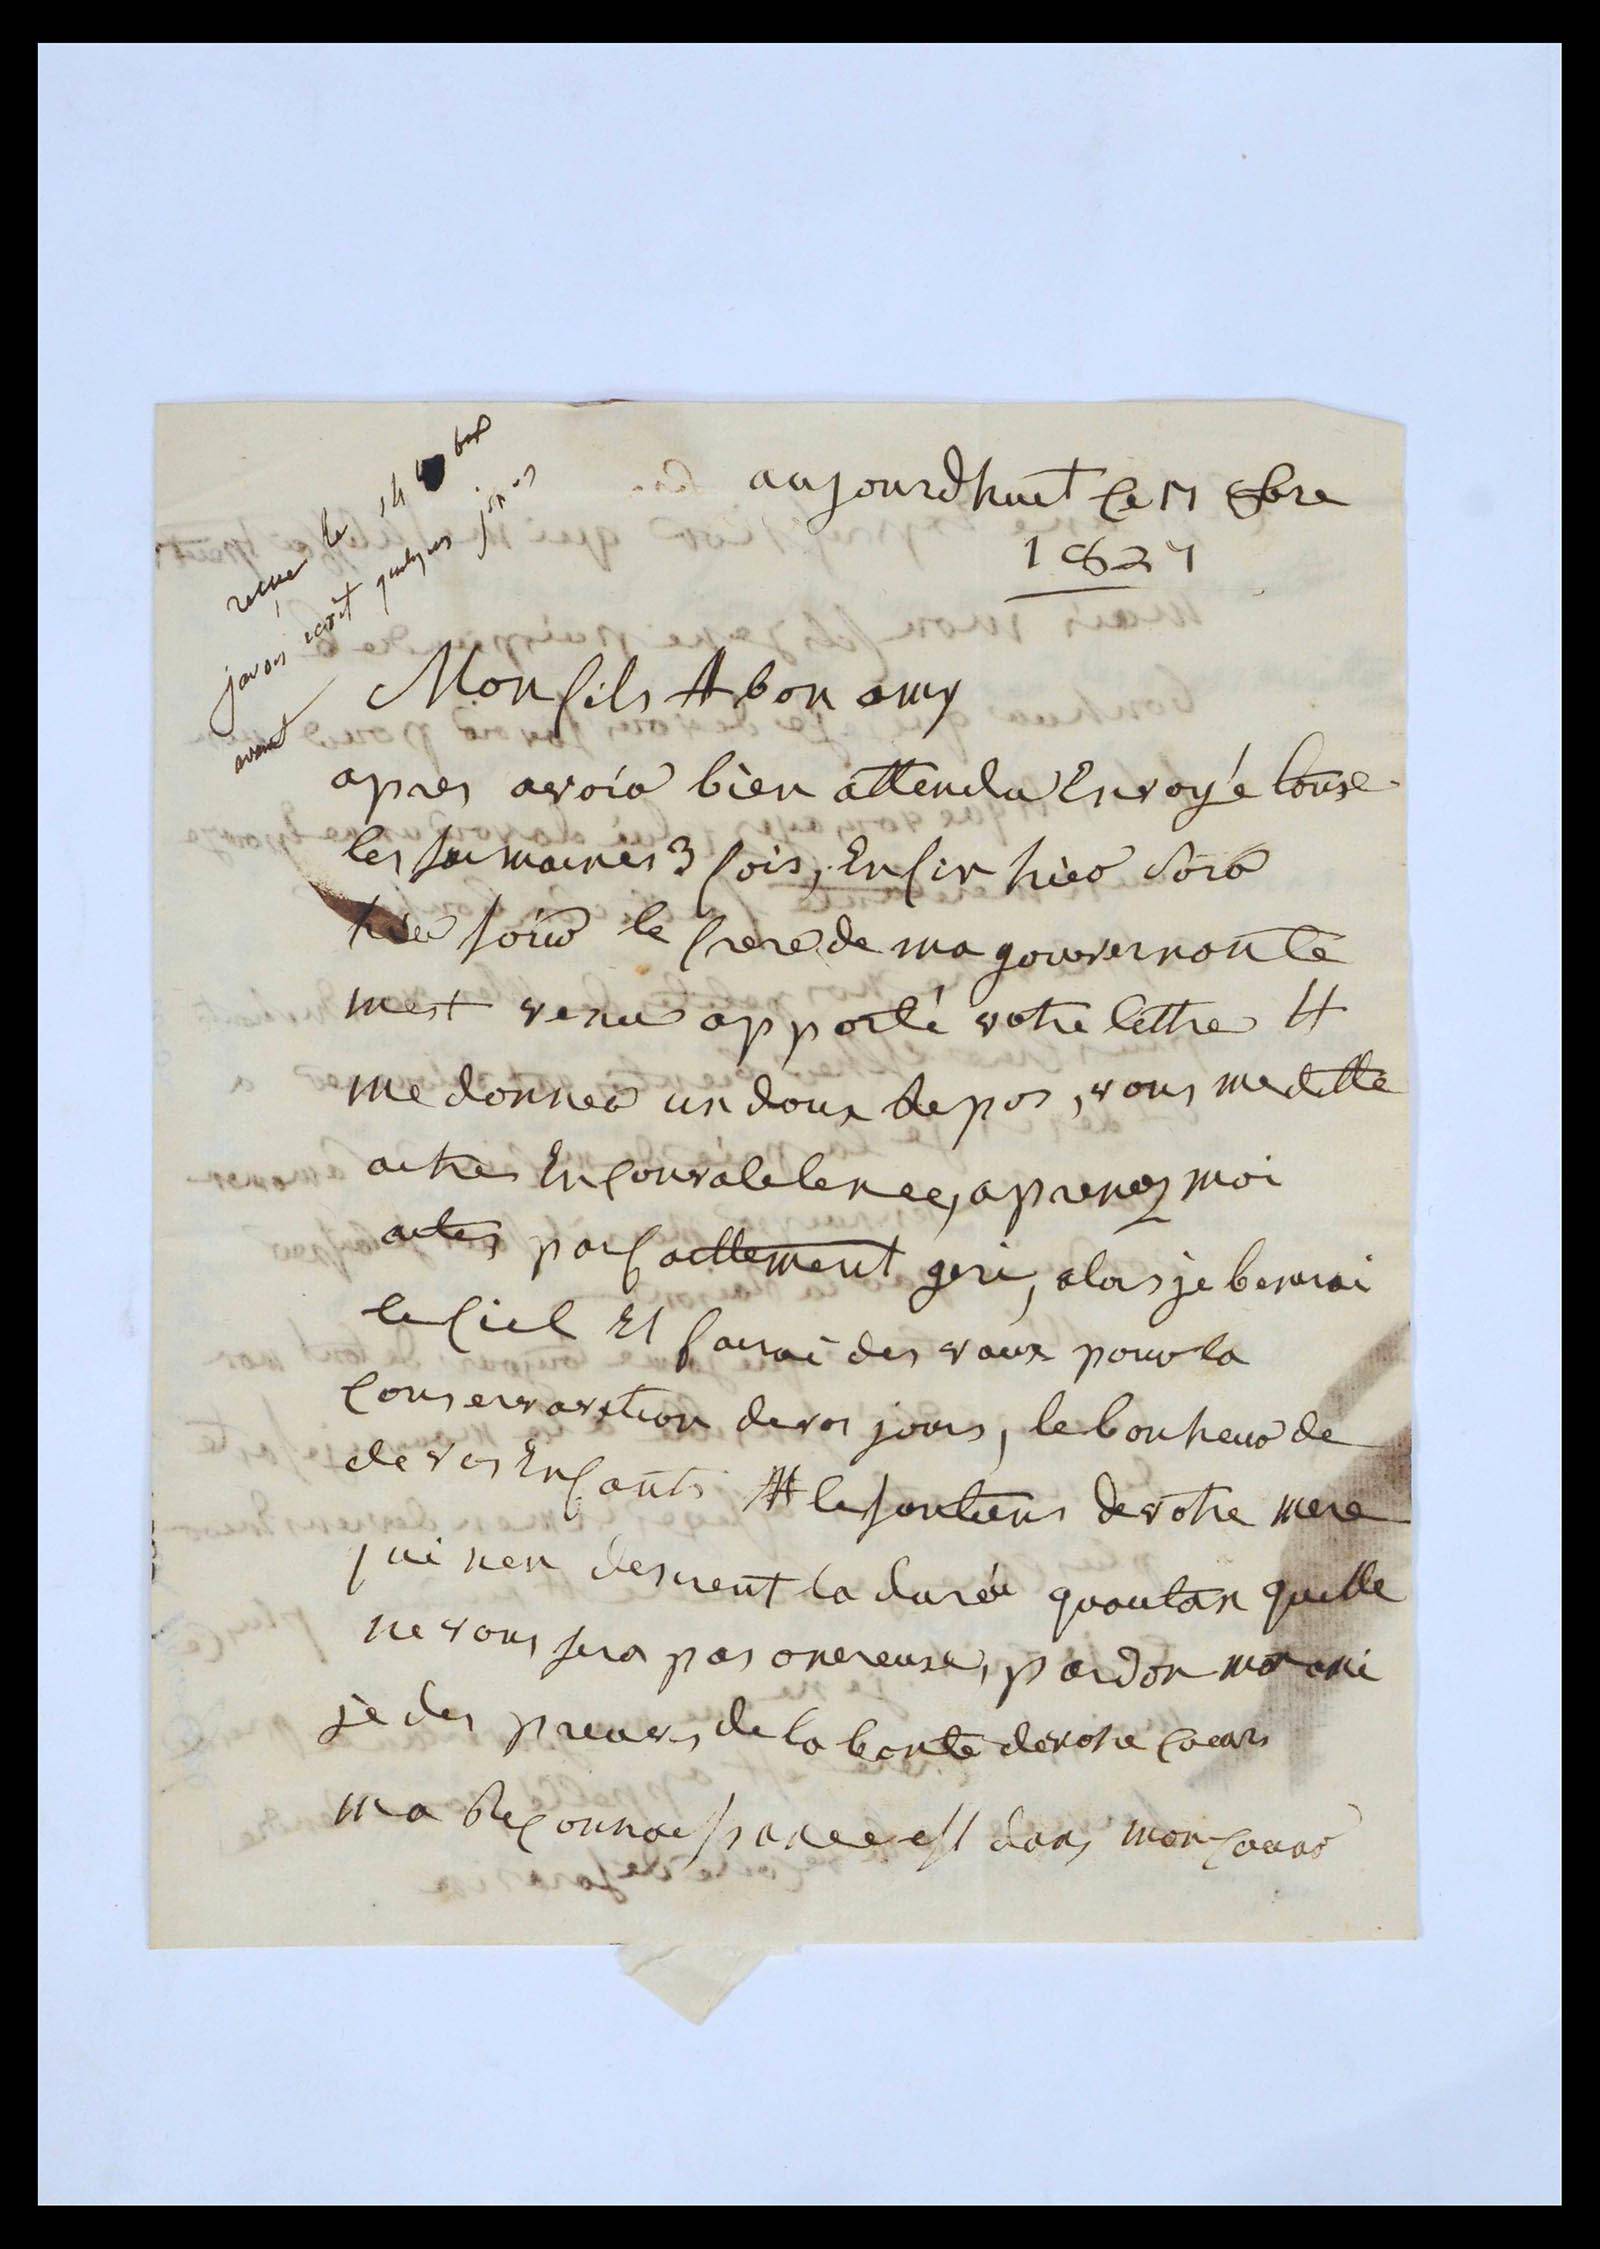 recue le 14 bre
javois recrit quelques jours
avant
aujourdhuit ce 11 8bre
1827
Mon fils et bon amy
apres avoir bien attendu Envoyé touse
les semaines 3 fois, Enfin hier soir
hier soir le frere de ma gouvernante
mest venu apporté votre lettre et
me donner un doux repos, vous me ditte
aitre En convalelencee, aprenez moi
aites parfaittement geri, alors je benirai
le Ciel Et fairai des vaux pour la
Conservavetion de vos jours, le bonheur de
de vos Enfants et le soutiens de votre mere
qui nen desirent la durée quoutan quelle
ne vous sera pas onereuse, pardon mon ami
jè des preuves de la bonté de votre Coeurs
ma Reconnoissancee est dans mon Coeur